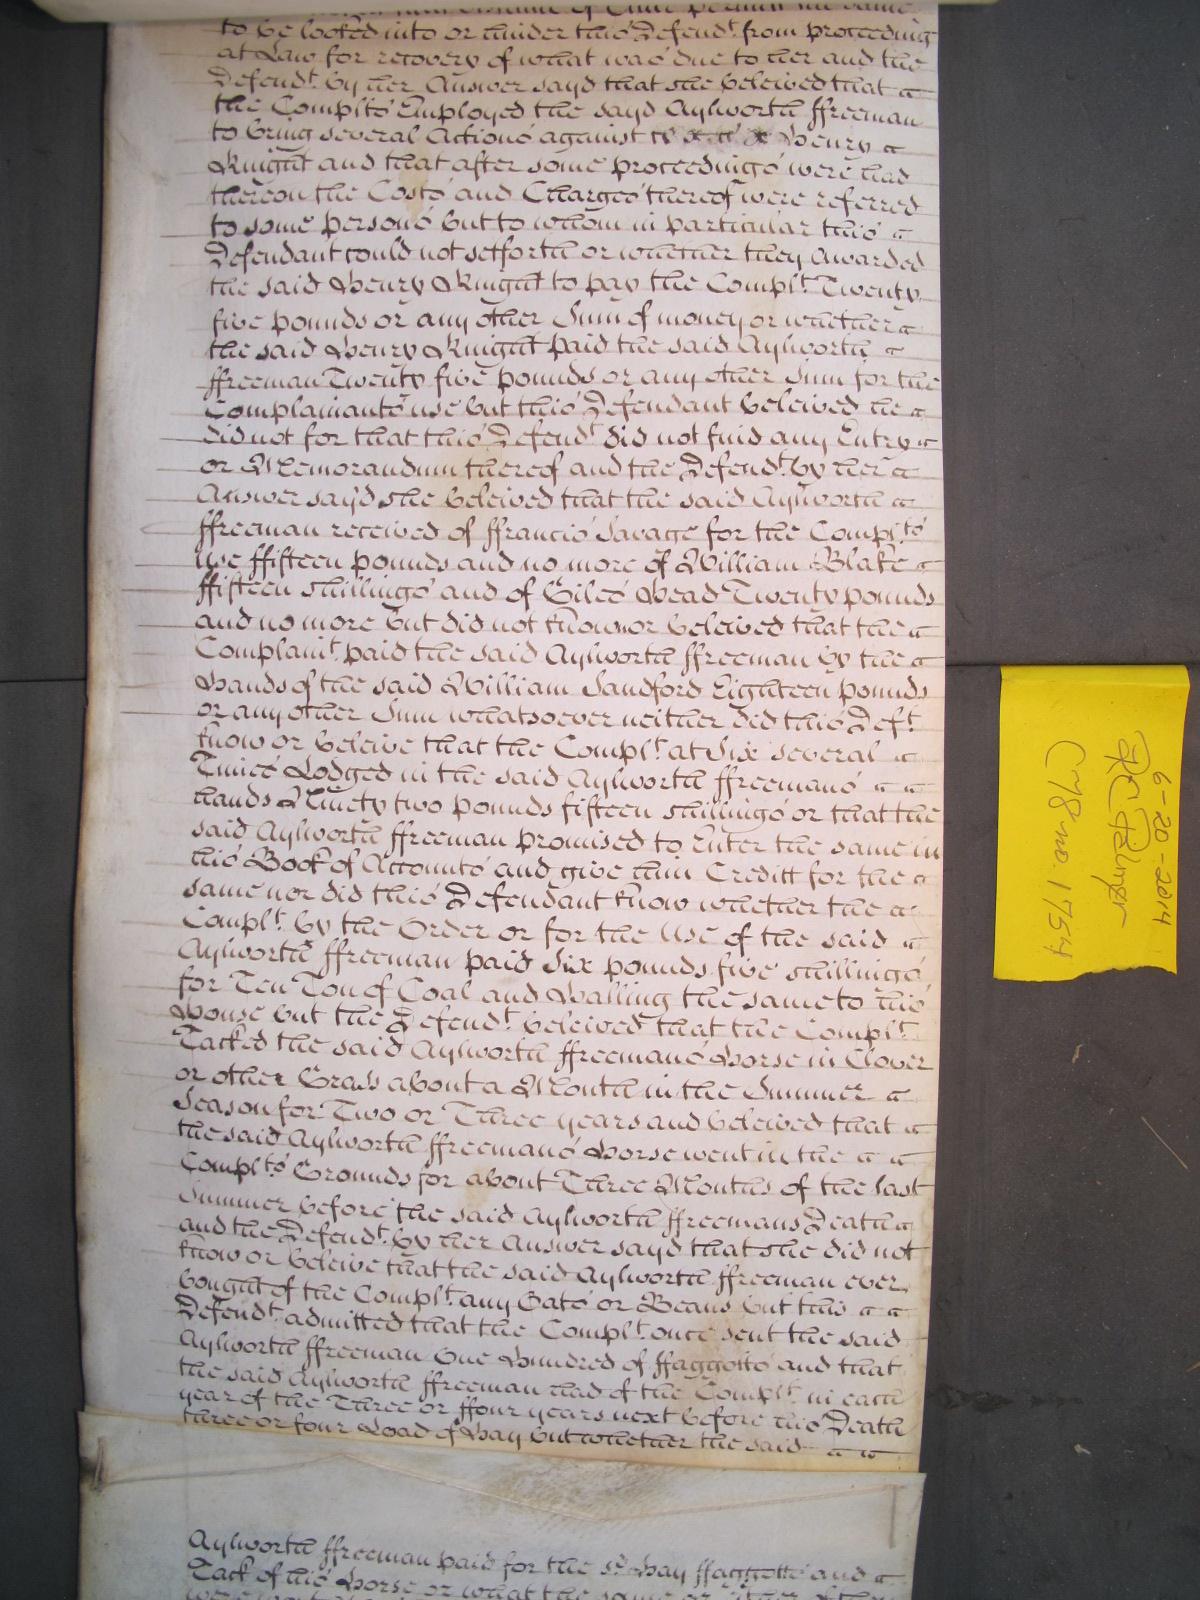 to be looked into or hinder this Defendt. from proceeding
at Law for recovery of what was due to her and the
Defendt. by her Answer sayd that she beleived that
the Complts Employed the sayd Aylworth ffreeman
to bring several Actions against Henry
Knight and that after some proceedings were had
thereon the Costs and Charges thereof were referred
to some persons but to whom in particular this
Defendant could not setforth or whether they Awarded
the said Henry Knight to pay the Complt. Twenty
five pounds or any other Sum of money or whether
the said Henry Knight paid the said Aylworth
ffreeman Twenty five pounds or any other Sum for the
Complainants use but this Defendant beleived he
did not for that this Defendt. did not find any Entry
or Memorandum thereof and the Defendt. by her
Answer sayd she beleived that the said Aylworth
ffreeman received of ffrancis Savage for the Complts
Use ffifteen pounds and no more of William Blake
ffifteen shillings and of Giles Head Twenty pounds
and no more but did not know or beleived that the
Complaint. paid the said Aylworth ffreeman by the
Hands of the said William Sandford Eighteen pounds
or any other Sum whatsoever neither did this Deft.
know or beleive that the Complt. at Six several
Times Lodged in the said Aylworth ffreemans
hands Ninety two pounds fifteen shillings or that the
said Aylworth ffreeman promised to Enter the same in
his Book of Accounts and give him Creditt for the
same nor did this Defendant know whether the
Complt. by the Order or for the Use of the said
Aylworth ffreeman paid Six pounds five shillings
for Ten Ton of Coal and Halling the same to his
House but the Defendt. beleived that the Complt.
Tacked the said Aylworth ffreemans Horse in Clover
or other Grass about a Month in the Summer
Season for Two or Three years and beleived that
the said Aylworth ffreemans Horse went in the
Complts Grounds for about Three Months of the last
Summer before the said Aylworth ffreemans Death
and the Defendt. by her Answer sayd that she did not
know or beleive that the said Aylworth ffreeman ever
bought of the Complt. any Oats or Beans but this
Defendt. admitted that the Complt. once sent the said
Aylworth ffreeman One Hundred of ffaggotts and that
the said Aylworth ffreeman had of the Complt. in each
year of the Three or ffour years next before his Death
three or four Load of Hay but whether the said
Aylworth ffreeman paid for the sd. Hay ffaggotts and
Tack of his Horse or what the same or
6-20-2014
C78 no. 1754